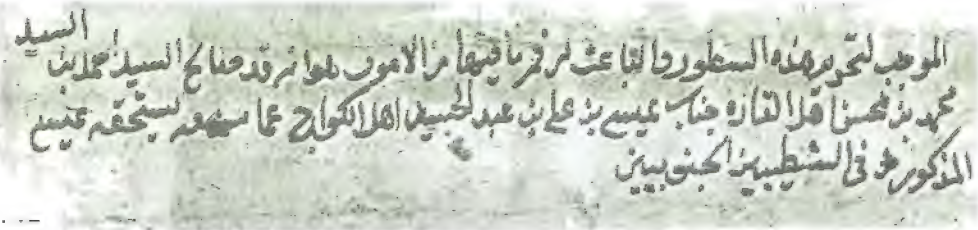 الموجب لتحرير هذه السطور والباعث لرقم ما فيها من الامور هو انه قد صالح السيد احمد بن السيد
محمد بن محسن اهل القاره جناب عيسى بن علي بن عبد الحسين اهل الكواج عما يستحقه عيسى
المذكور في الشطيبين الجنوبيين